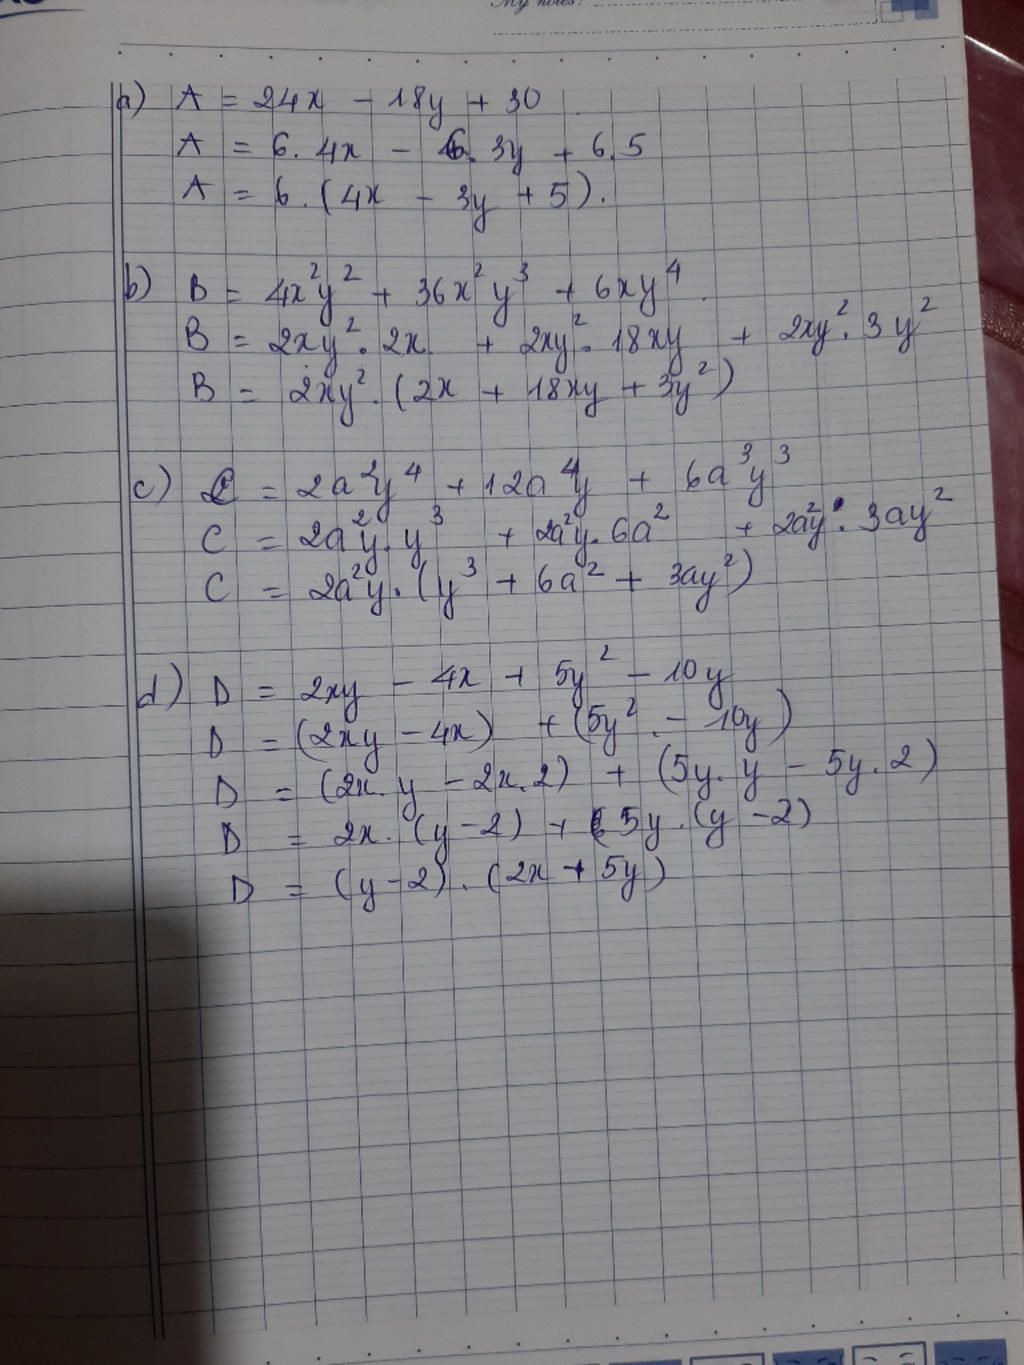 My notes:
a) A = 24x - 18y + 30
A = 6.4x - 6.3y + 6.5
A = 6.(4x - 3y + 5).
b) B = 4x²y² + 36x²y³ + 6xy⁴.
B = 2xy².2x + 2xy².18xy + 2xy².3y²
B = 2xy².(2x + 18xy + 3y²)
c) C = 2a²y⁴ + 12a⁴y + 6a³y³
C = 2a²y.y³ + 2a²y.6a² + 2a²y.3ay²
C = 2a²y.(y³ + 6a² + 3ay²)
d) D = 2xy - 4x + 5y² - 10y
D = (2xy - 4x) + (5y² - 10y)
D = (2x.y - 2x.2) + (5y.y - 5y.2)
D = 2x.(y - 2) + 5y.(y - 2)
D = (y - 2).(2x + 5y)